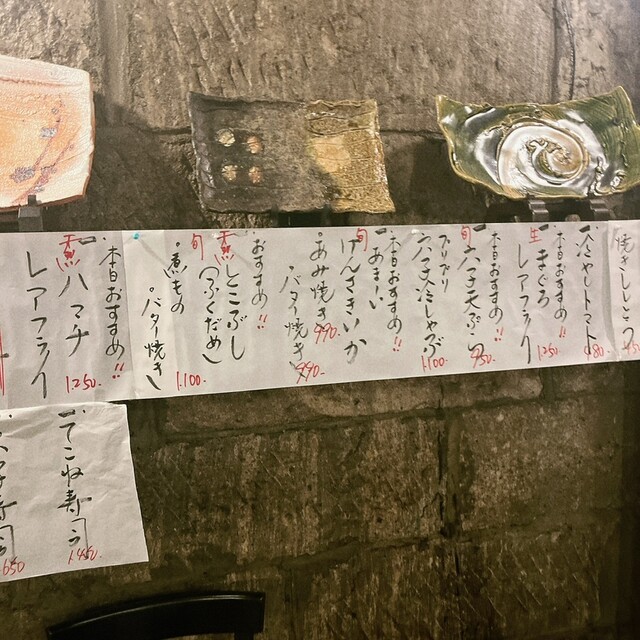 焼きししとう
冷やしトマト
480
本日おすすめ!!
生
まぐろ
レアフライ
1250.
本日おすすめ!!
旬
穴子天ぷら
950.
プリプリ
穴子冷しゃぶ
1100.
本日おすすめ!!
あまーい
旬
けんさきいか
あみ焼き
990.
バター焼き
990.
おすすめ!!
旬
とこぶし
(ふくだめ)
1100.
・煮もの
・バター焼き
本日おすすめ!!
ハマチ
レアフライ
1250.
てこね寿司
寿司
650